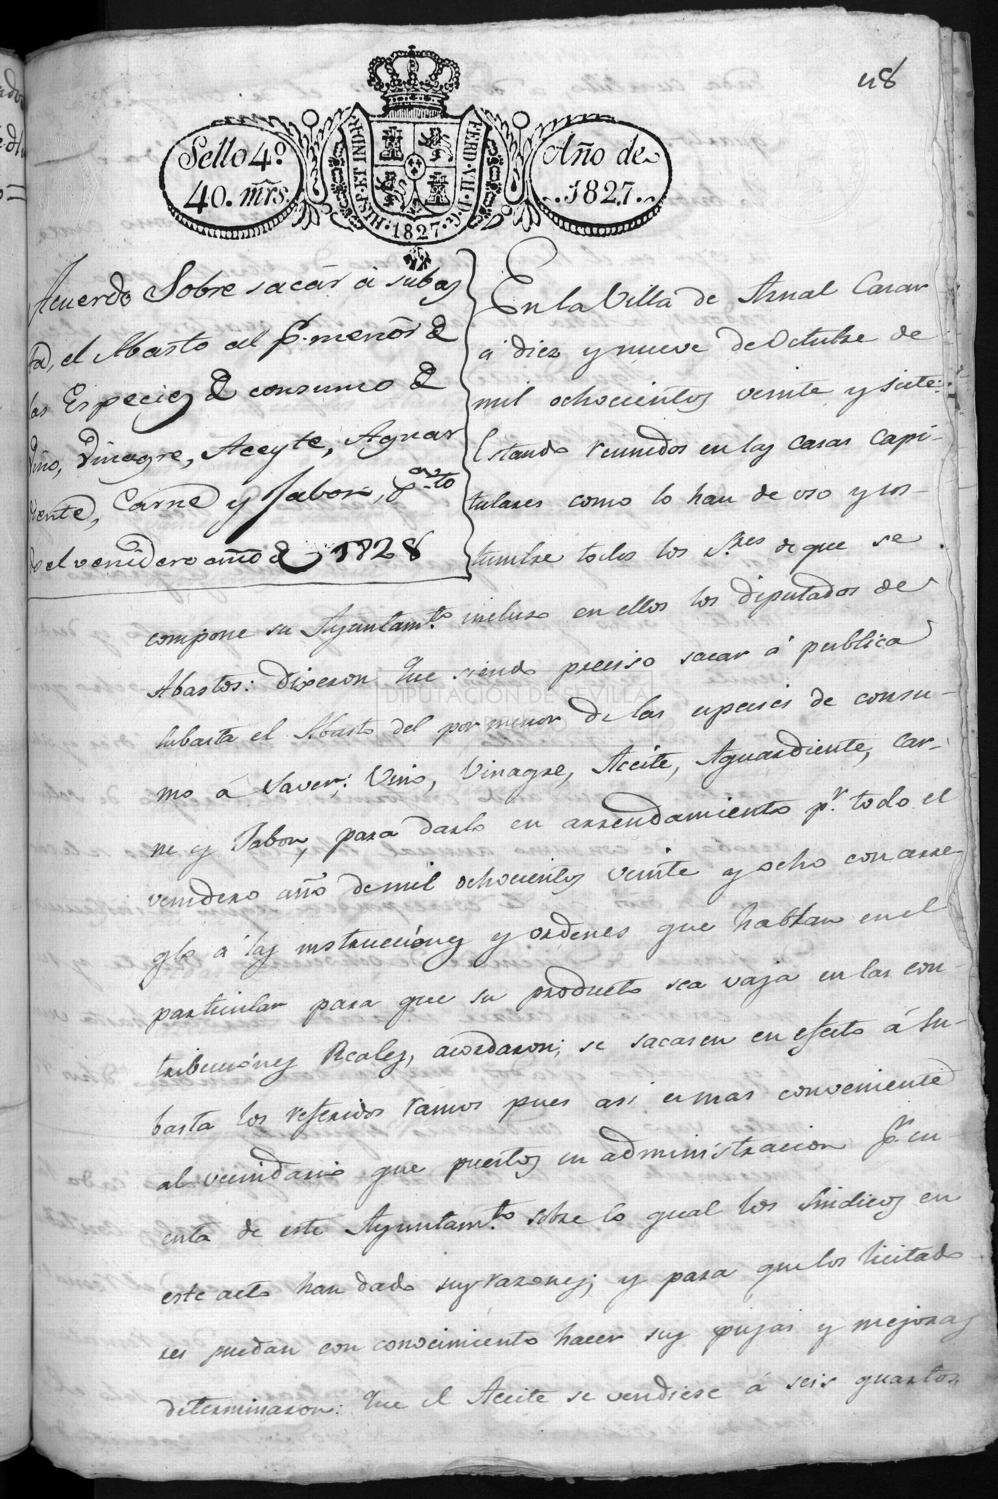 48
Sello 4º
40. mrs.
HISP. ET IND. R.
FERD. VII. D. G.
1827.
Año de
1827.
Acuerdo Sobre sacar á subas
ta, el Abasto al p.r menor de
las Especies de consumo de
Vino, Vinagre, Aceyte, Aguar
diente, Carne y Jabon,
del venidero año de 1828
En la Villa de Aznal Cazar
á diez y nueve de Octubre de
mil ochocientos veinte y siete:
Estando reunidos en las casas capi-
tulares como lo han de uso y cos-
tumbre todos los S.res de que se
compone su Ayuntam.to incluso en ellos los diputados de
Abastos: dixeron Que siendo preciso sacar á publica
subasta el Abasto del por menor de las especies de consu-
mo á saver: Vino, Vinagre, Aceite, Aguardiente, car-
ne y Jabon, para darlo en arrendamiento p.r todo el
venidero año de mil ochocientos veinte y ocho con arre
glo á las instrucciones y ordenes que hablan en el
particular para que su producto sea vaja en las con-
tribuciones Reales, acordaron; se sacasen en efecto á Su-
basta los referidos ramos pues asi es mas conveniente
al vecindario que puestos en administracion p.r cu-
enta de este Ayuntam.to sobre lo qual los Sindicos en
este acto han dado sus razones; y para que los licitado
res puedan con conocimiento hacer sus pujas y mejoras
determinaron: Que el Aceite se vendiese á seis quartos
DIPUTACIÓN DE SEVILLA